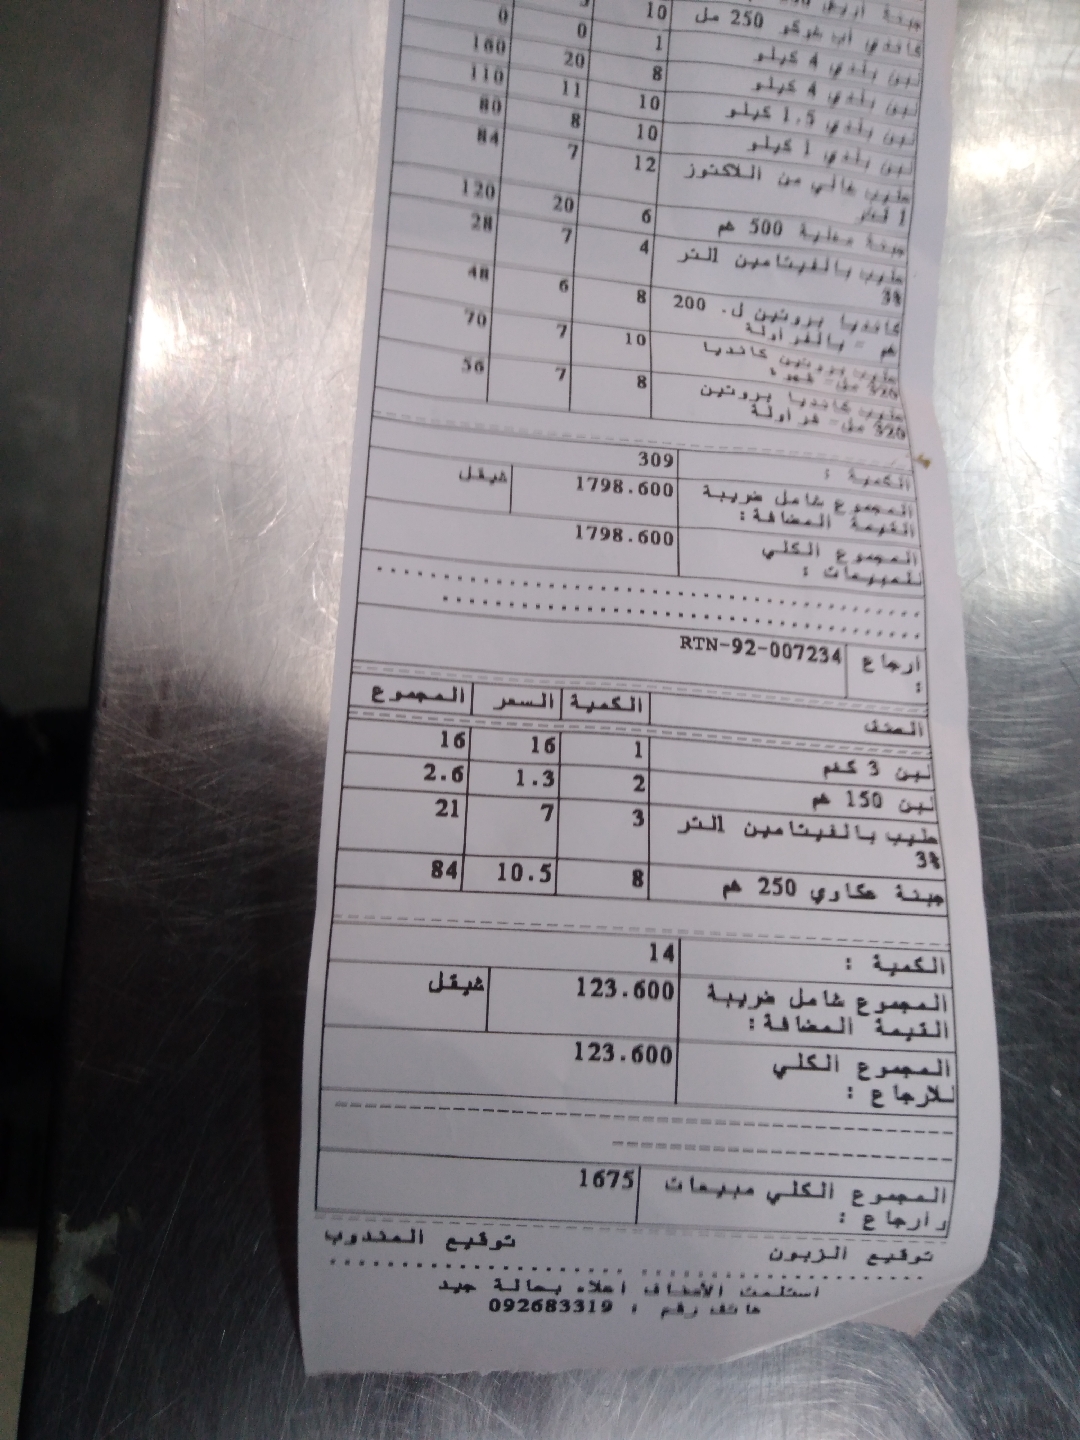 كاندي اب شوكو 250 مل 10
لبن بلدي 4 كيلو 1 0 0
لبن بلدي 4 كيلو 8 20 160
لبن بلدي 1.5 كيلو 10 11 110
لبن بلدي 1 كيلو 10 8 80
حليب خالي من اللاكتوز 12 7 84
1 لتر
جبنة مغلية 500 غم 6 20 120
حليب بالفيتامين التر 4 7 28
3%
كانديا بروتين ل. 200 8 6 48
غم - بالفراولة
حليب بروتين كانديا 10 7 70
320 مل-
حليب كانديا بروتين 8 7 56
320 مل- فراولة
الكمية : 309
المجموع شامل ضريبة 1798.600 شيقل
القيمة المضافة:
المجموع الكلي 1798.600
للمبيعات :
ارجاع RTN-92-007234
:
الصنف الكمية السعر المجموع
لبن 3 كغم 1 16 16
لبن 150 غم 2 1.3 2.6
حليب بالفيتامين التر 3 7 21
3%
جبنة عكاوي 250 غم 8 10.5 84
الكمية : 14
المجموع شامل ضريبة 123.600 شيقل
القيمة المضافة:
المجموع الكلي 123.600
للارجاع :
المجموع الكلي مبيعات 1675
وارجاع :
توقيع الزبون توقيع المندوب
استلمت الأصناف اعلاه بحالة جيد
هاتف رقم : 092683319